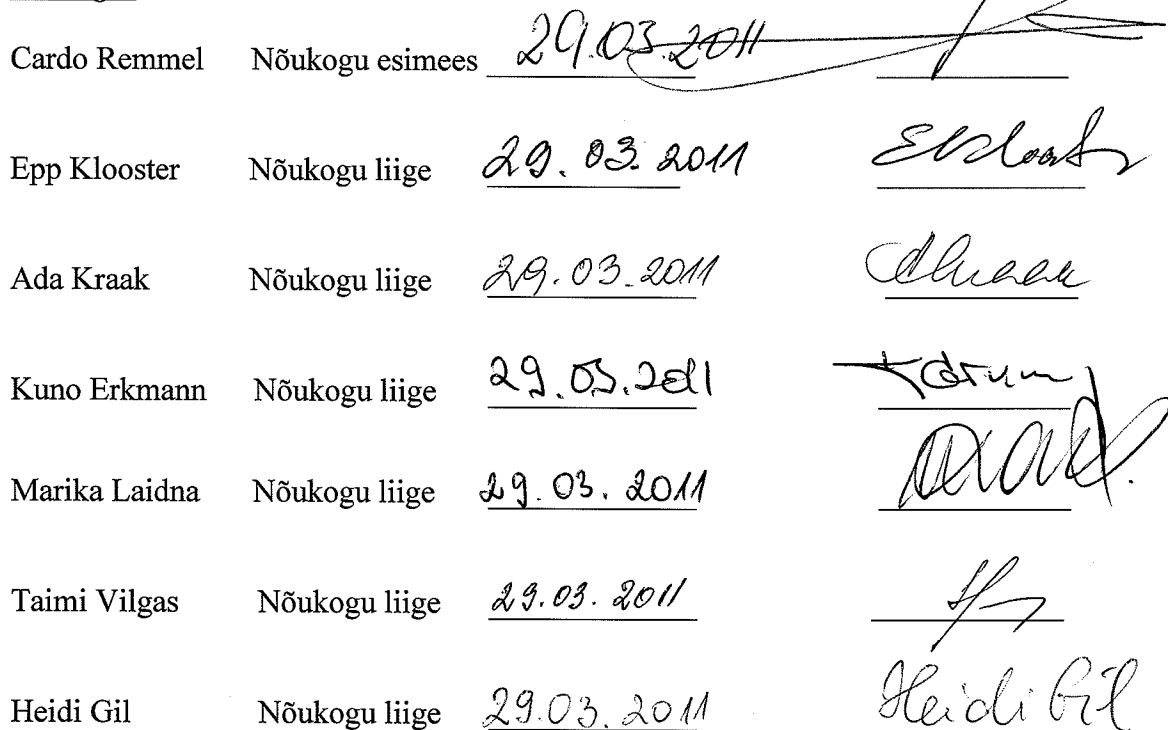 Cardo Remmel Nõukogu esimees 29.03.2011
Epp Klooster Nõukogu liige 29.03.2011
Ada Kraak Nõukogu liige 29.03.2011
Kuno Erkmann Nõukogu liige 29.03.2011
Marika Laidna Nõukogu liige 29.03.2011
Taimi Vilgas Nõukogu liige 29.03.2011
Heidi Gil Nõukogu liige 29.03.2011 Heidi Gil